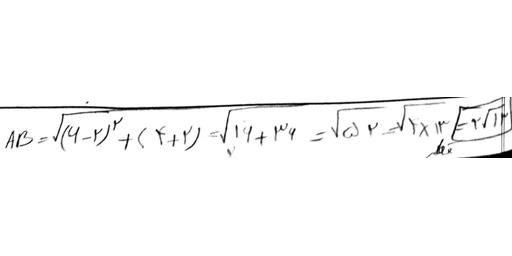 AB = √(۶-۲)^۲ + (۴+۲) = √۱۶+۳۶ = √۵۲ = √۴×۱۳ = ۲√۱۳